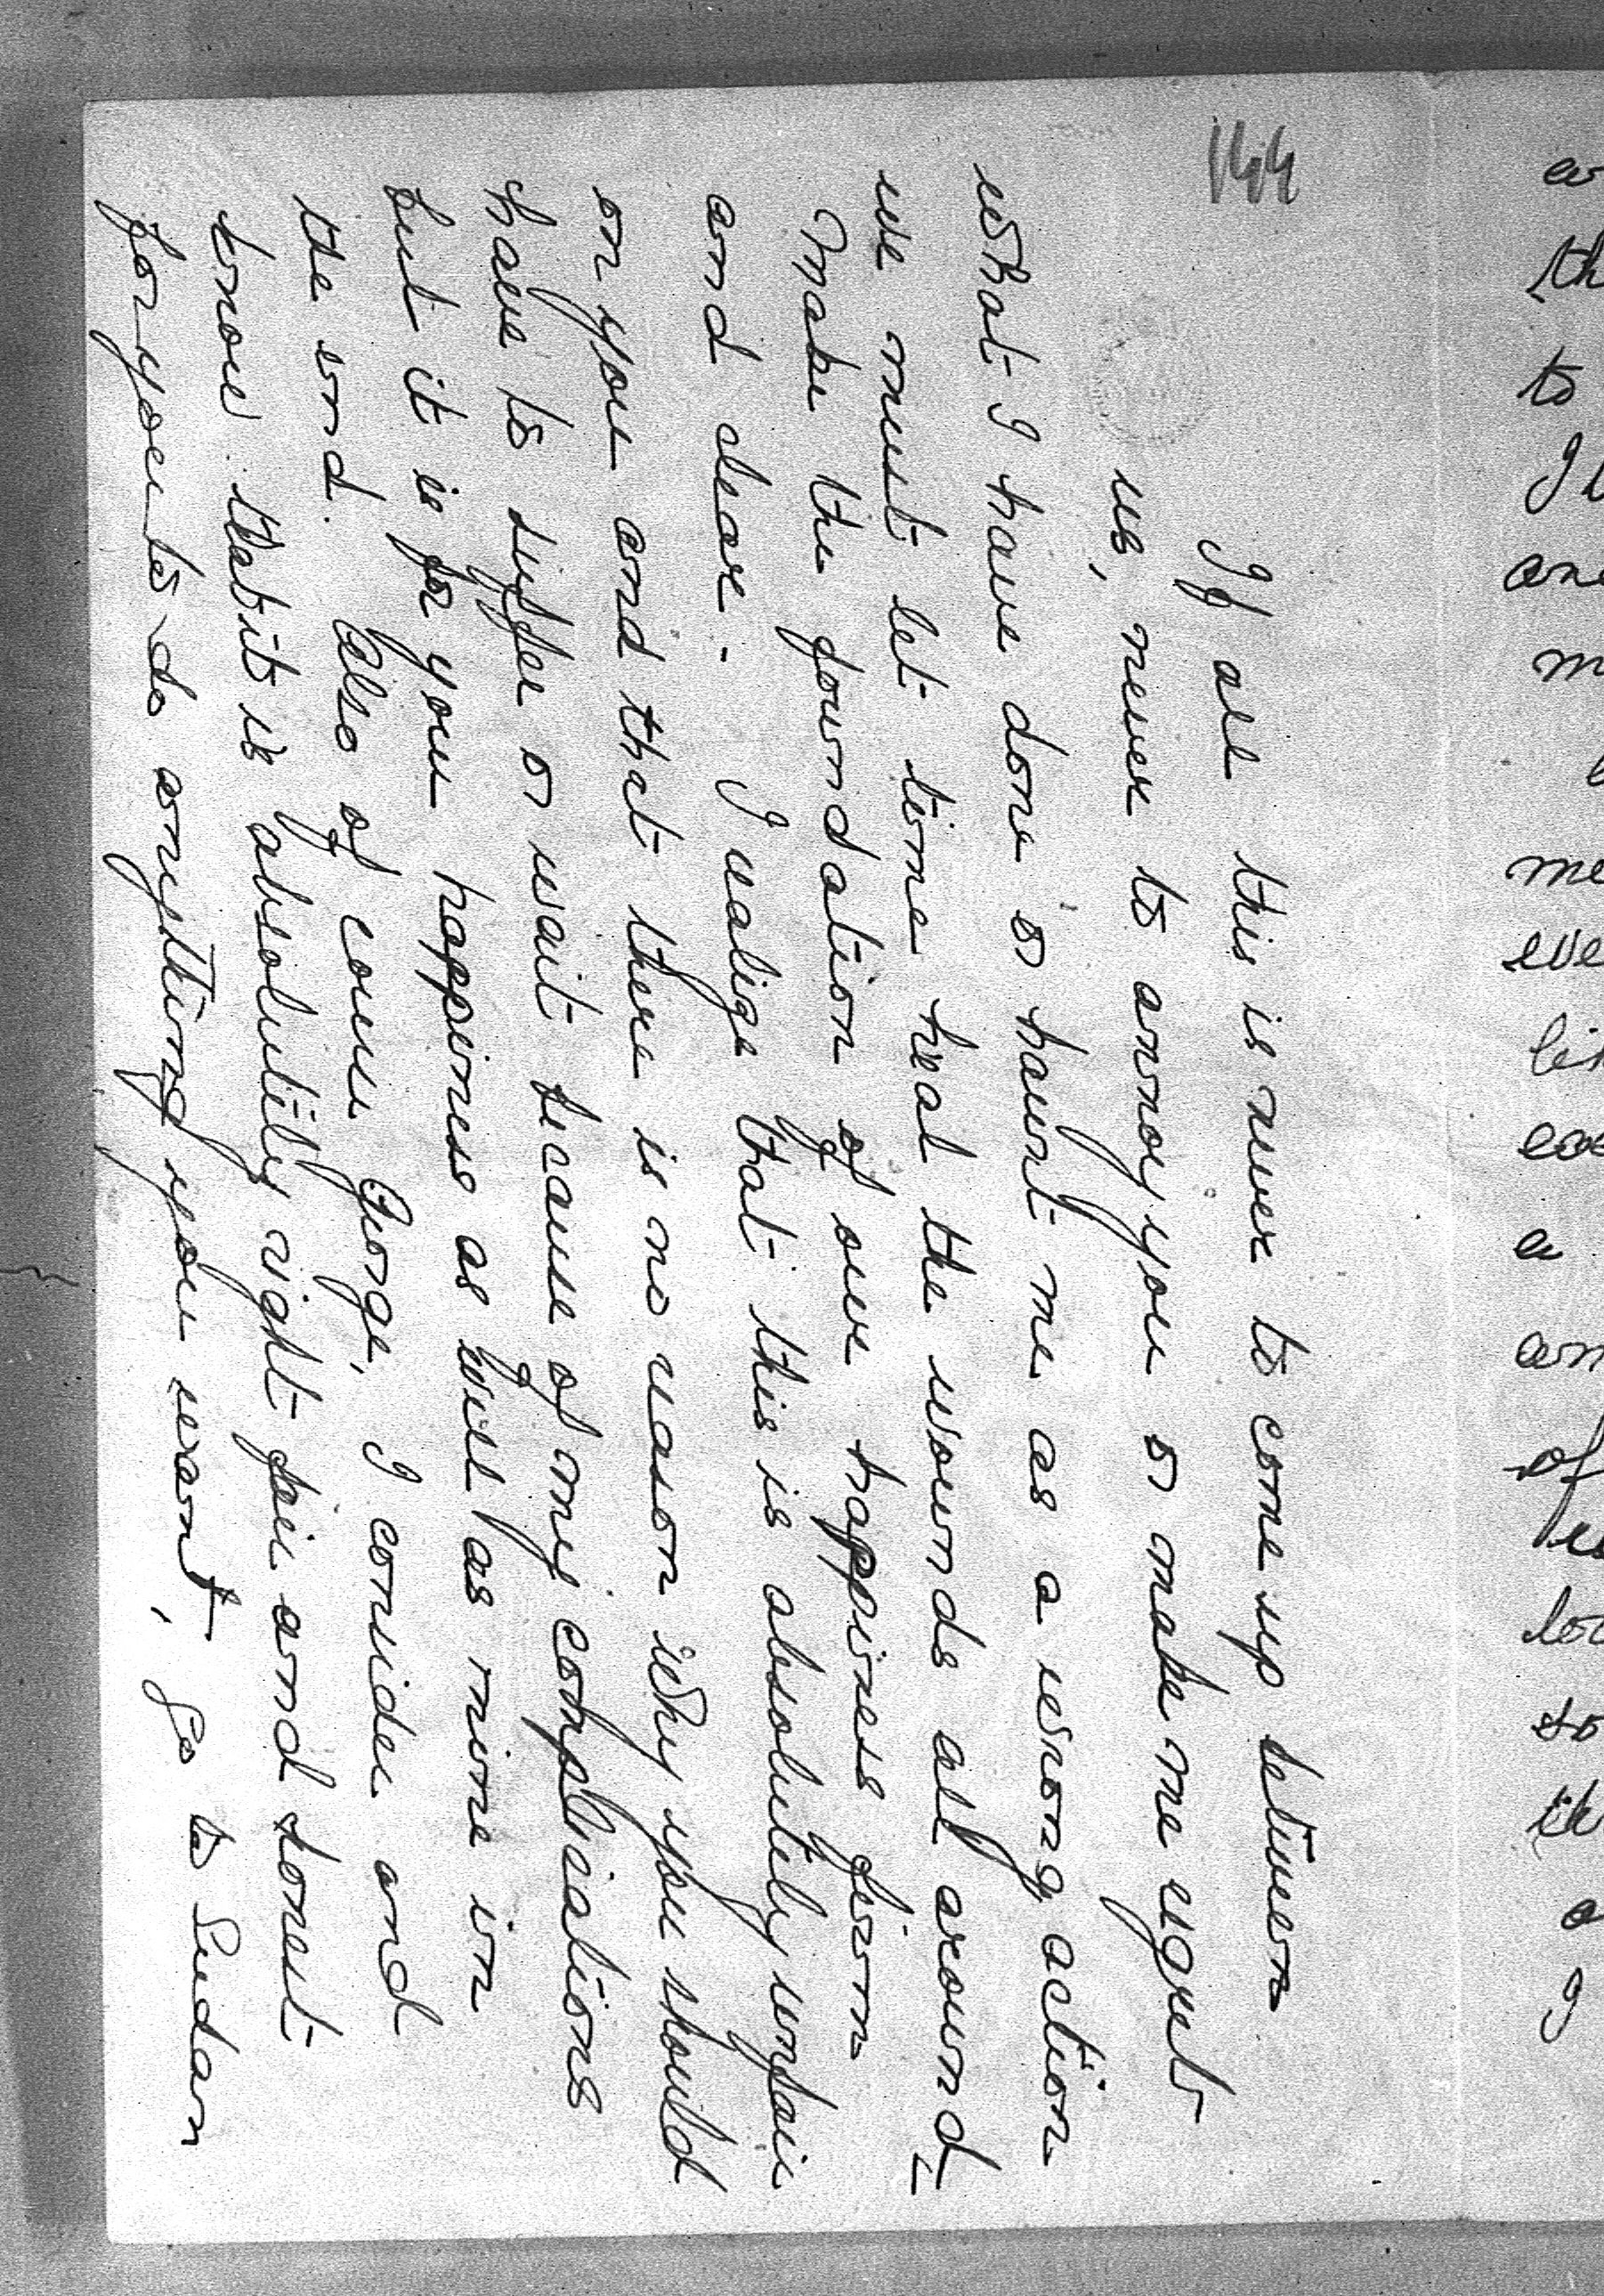 144
If all this is never to come up between
us, never to annoy you or make me regret
what I have done or haunt me as a wrong action
we must let time heal the wounds all around
make the foundation of our happiness firm
and clear - I realize that this is absolutely unfair
on you and that there is no reason why you should
have to suffer or wait because of my complications
but it is for your happiness as well as mine in
the end. Also of course George, I consider and
know that it is absolutely right fair and honest
for you to do anything you want, go to Sudan
th
to